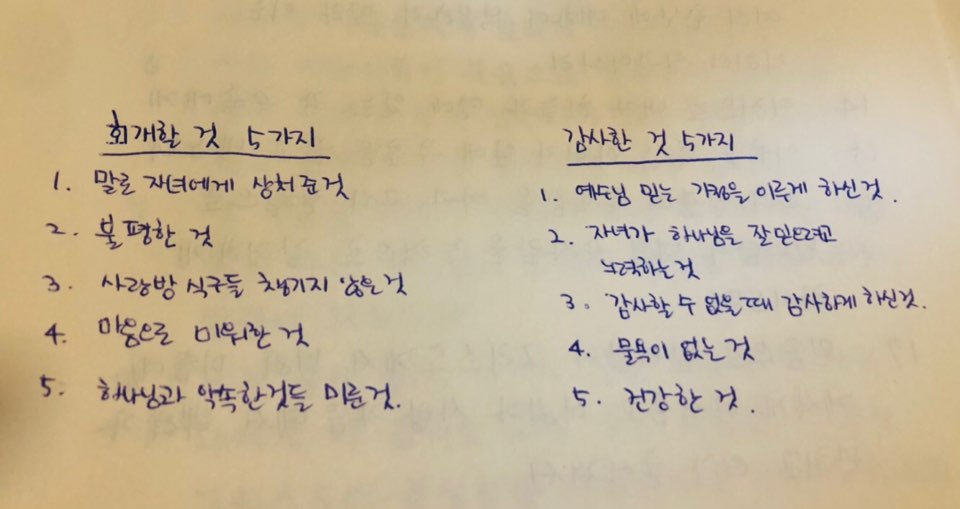 회개할 것 5가지
1. 말로 자녀에게 상처준것
2. 불평한 것
3. 사랑방 식구들 챙기지 않은것
4. 마음으로 미워한 것
5. 하나님과 약속한것들 미룬것.
감사한 것 5가지
1. 예수님 믿는 가정을 이루게 하신것.
2. 자녀가 하나님을 잘믿으려고
노력하는것
3. 감사할 수 없을때 감사하게 하신것.
4. 물욕이 없는것
5. 건강한 것.